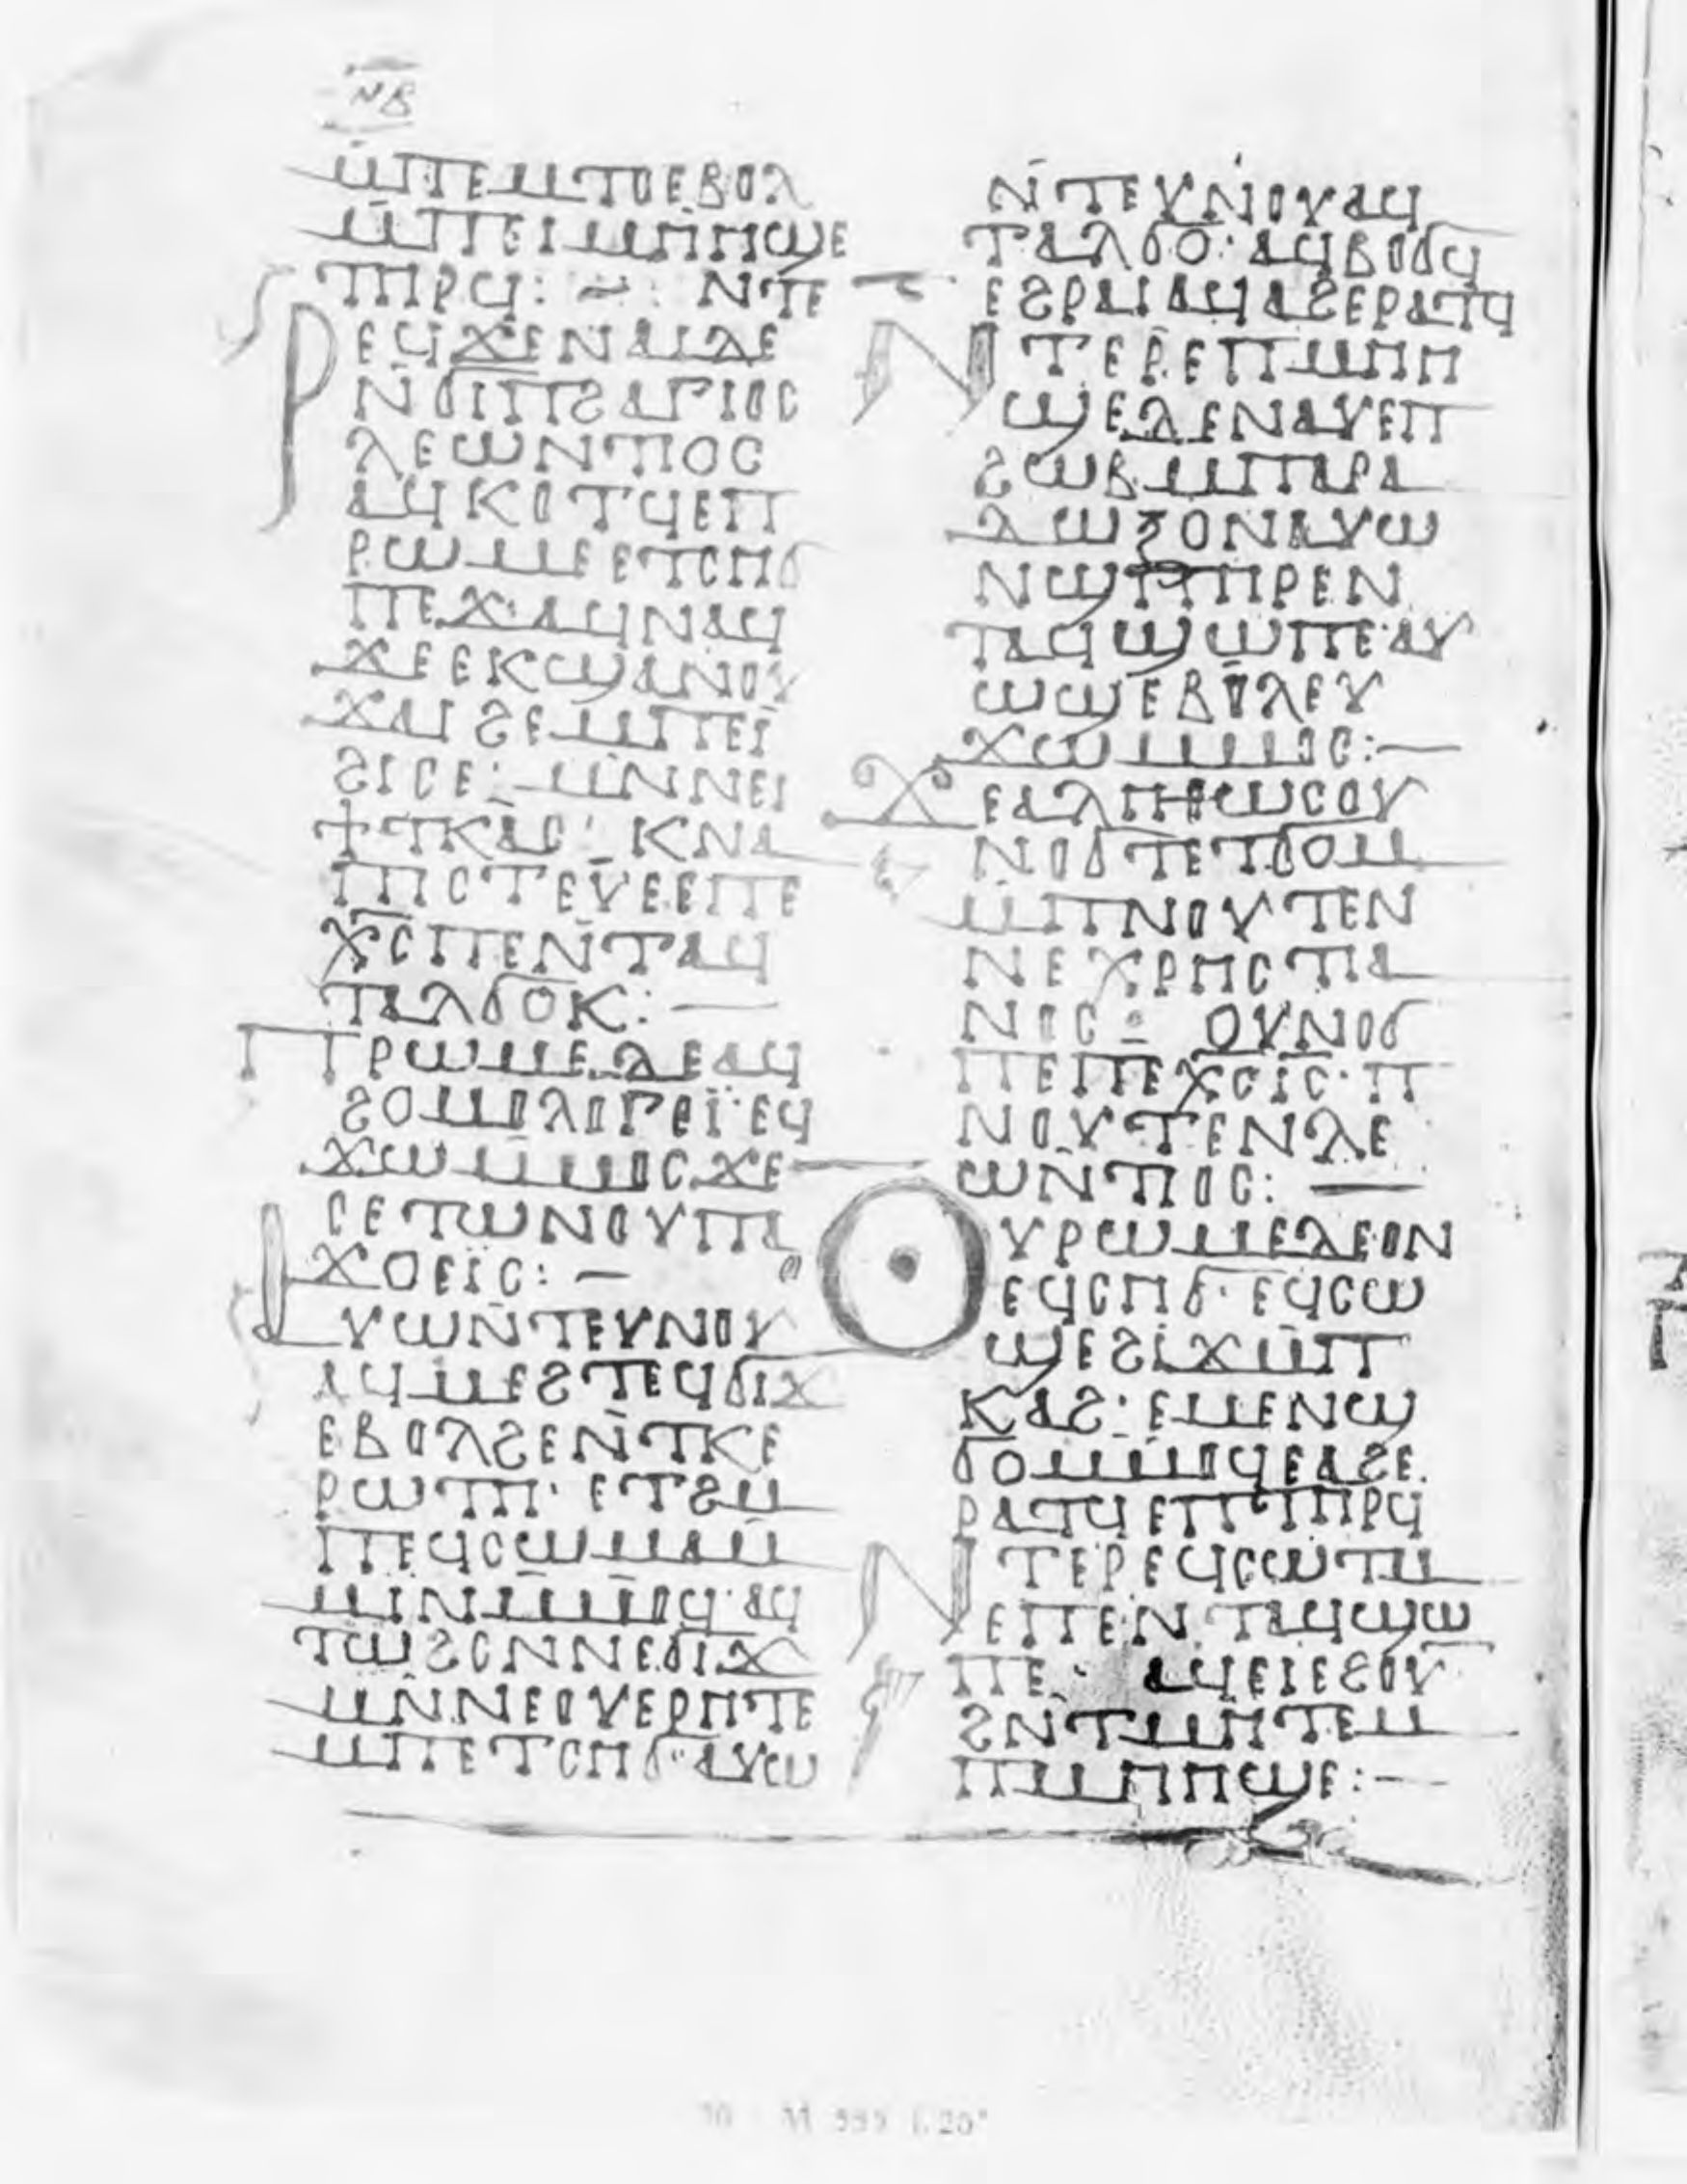 ⲛⲃ
ⲙ̄ⲡⲉⲙⲧⲟⲉⲃⲟⲗ
ⲙ̄ⲡⲉⲓⲙⲏⲏϣⲉ
ⲧⲏⲣϥ: ~ : ⲛⲧⲉ
ⲣⲉϥϫⲉⲛⲁⲓⲇⲉ
ⲛ̄ϭⲓⲡϩⲁⲅⲓⲟⲥ
ⲗⲉⲱⲛⲧⲓⲟⲥ
ⲁϥⲕⲟⲧϥⲉⲡ
ⲣⲱⲙⲉⲉⲧⲥⲏϭ
ⲡⲉϫⲁϥⲛⲁϥ
ϫⲉⲉⲕϣⲁⲛⲟⲩ
ϫⲁⲓϩⲉⲙⲡⲉⲓ̈
ϩⲓⲥⲉ: ⲙⲛ̄ⲛⲉⲓ
ϯⲧⲕⲁⲥ· ⲕⲛⲁ
ⲡⲓⲥⲧⲉⲩⲉⲉⲡⲉ
ⲭ̅ⲥ̅ⲡⲉⲛ̄ⲧⲁϥ
ⲧⲁⲗϭⲟⲕ: —
ⲡⲣⲱⲙⲉⲇⲉⲁϥ
ϩⲟⲙⲟⲗⲟⲅⲉⲓ̈·ⲉϥ
ϫⲱⲙ̄ⲙⲟⲥϫⲉ
ⲥⲉⲧⲱⲛⲟⲩⲡⲁ
ϫⲟⲉⲓⲥ: —
ⲁⲩⲱⲛ̄ⲧⲉⲩⲛⲟⲩ
ⲁϥⲙⲉϩⲧⲉϥϭⲓϫ
ⲉⲃⲟⲗϩⲉⲛ̄ⲧⲕⲉ
ⲣⲱⲧⲏ· ⲉⲧϩⲙ
ⲡⲉϥⲥⲱⲙⲁⲙ̄
ⲙⲓⲛⲙ̄ⲙⲟϥ·ⲁϥ
ⲧⲱϩⲥⲛⲛⲉϭⲓϫ
ⲙⲛ̄ⲛⲉⲟⲩⲉⲣⲏⲧⲉ
ⲙⲡⲉⲧⲥⲏϭ·ⲁⲩⲱ
ⲛ̄ⲧⲉⲩⲛⲟⲩⲁϥ
ⲧⲁⲗϭⲟ: ⲁϥⲃⲟϭϥ
ⲉϩⲣⲁⲓⲁϥⲁϩⲉⲣⲁⲧϥ
ⲛⲧⲉⲣⲉⲡⲙⲏⲏ
ϣⲉⲇⲉⲛⲁⲩⲉⲡ
ϩⲱⲃⲙⲡⲁⲣⲁ
ⲇⲱⲝⲟⲛⲁⲩⲱ
ⲛϣⲡⲏⲣⲉⲛ
ⲧⲁϥϣⲱⲡⲉ·ⲁⲩ
ⲱϣⲉⲃⲟⲗⲉⲩ
ϫⲱⲙⲙⲟⲥ: —
ϫⲉⲁⲗⲏⲑⲱⲥⲟⲩ
ⲛⲟϭⲧⲉⲧϭⲟⲙ
ⲙ̄ⲡⲛⲟⲩⲧⲉⲛ
ⲛⲉⲭⲣⲏⲥⲧⲓⲁ
ⲛⲟⲥ· ⲟⲩⲛⲟϭ
ⲡⲉⲡⲉⲭ̅ⲥ̅ⲓ̅ⲥ̅·ⲡ
ⲛⲟⲩⲧⲉⲛⲗⲉ
ⲱⲛ̄ⲧⲓⲟⲥ: —
ⲟⲩⲣⲱⲙⲉⲇⲉⲟⲛ
ⲉϥⲥⲏϭ· ⲉϥⲥⲱ
ϣⲉϩⲓϫⲙ̄ⲡ
ⲕⲁϩ· ⲉⲙⲉⲛϣ
ϭⲟⲙⲙ̄ⲙⲟϥⲉⲁϩⲉ
ⲣⲁⲧϥⲉⲡⲧⲏⲣϥ
ⲛⲧⲉⲣⲉϥⲥⲱⲧⲙ
ⲉⲡⲉⲛⲧⲁϥϣⲱ
ⲡⲉ· ⲁϥⲉⲓⲉϩⲟⲩ
ϩⲛⲧⲙⲏⲧⲉⲙ
ⲡⲙⲏⲏϣⲉ: —